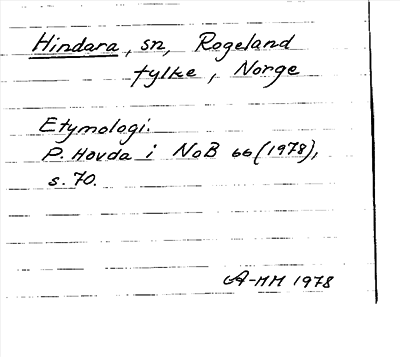 Hindara, sn, Rogeland
fylke, Norge
Etymologi:
P. Hovda i NoB 66 (1978),
s. 70.
A-MM 1978